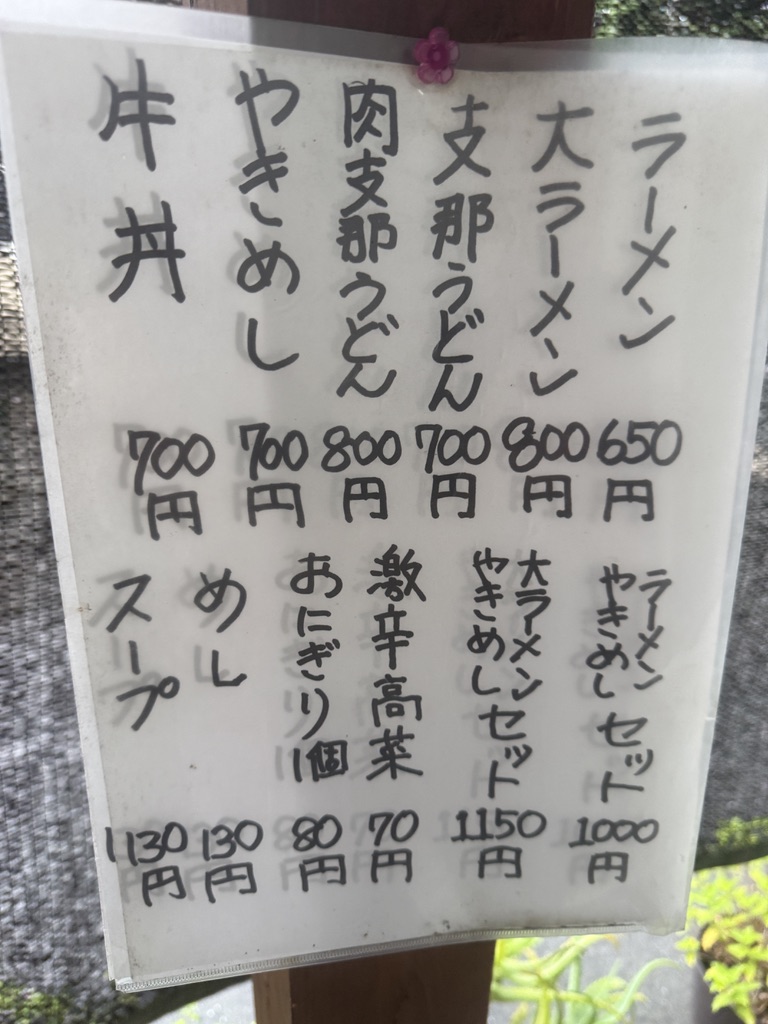 ラーメン
650円
大ラーメン
800円
支那うどん
700円
肉支那うどん
800円
やきめし
700円
牛丼
700円
ラーメン
やきめし
セット
1000円
大ラーメン
やきめし
セット
1150円
激辛高菜
70円
おにぎり1個
80円
めし
130円
スープ
1130円